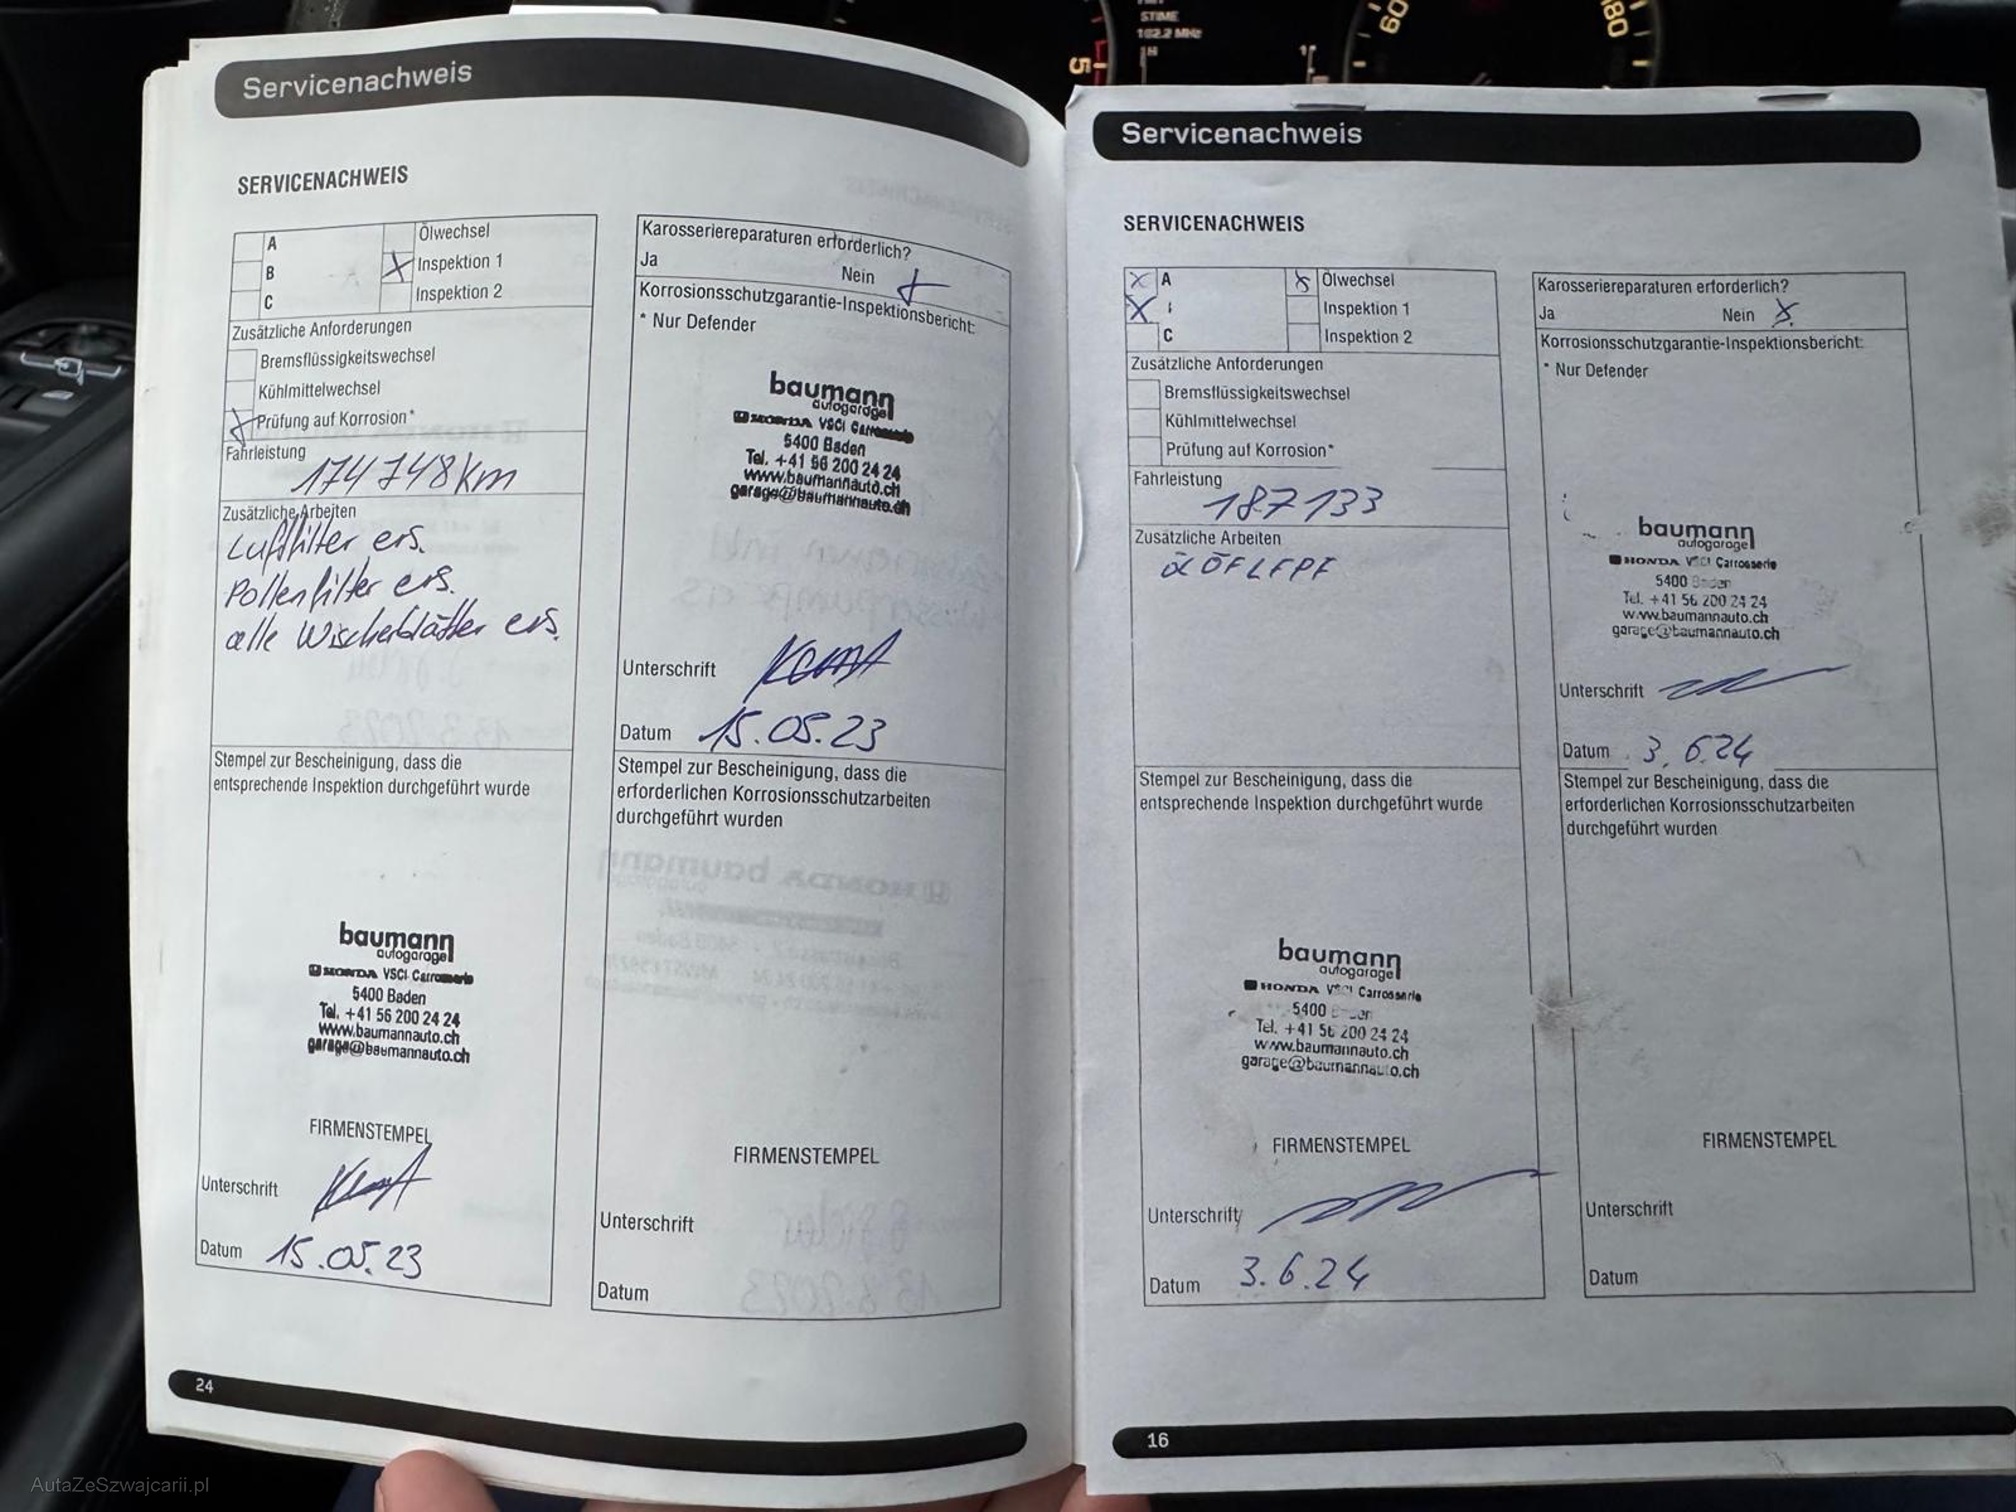 STIME
102.2 MHz
5
60
80
Servicenachweis
SERVICENACHWEIS
A
B
C
Ölwechsel
X Inspektion 1
Inspektion 2
Zusätzliche Anforderungen
Bremsflüssigkeitswechsel
Kühlmittelwechsel
X Prüfung auf Korrosion*
Fahrleistung
174 748 km
Zusätzliche Arbeiten
Luftfilter ers.
Pollenfilter ers.
alle Wischerblätter ers.
Stempel zur Bescheinigung, dass die
entsprechende Inspektion durchgeführt wurde
baumann
autogarage
HONDA VSCI Carrosserie
5400 Baden
Tel. +41 56 200 24 24
www.baumannauto.ch
garage@baumannauto.ch
FIRMENSTEMPEL
Unterschrift
Datum 15.05.23
Karosseriereparaturen erforderlich?
Ja Nein X
Korrosionsschutzgarantie-Inspektionsbericht:
* Nur Defender
baumann
autogarage
HONDA VSCI Carrosserie
5400 Baden
Tel. +41 56 200 24 24
www.baumannauto.ch
garage@baumannauto.ch
Unterschrift
Datum 15.05.23
Stempel zur Bescheinigung, dass die
erforderlichen Korrosionsschutzarbeiten
durchgeführt wurden
FIRMENSTEMPEL
Unterschrift
Datum
24
Servicenachweis
SERVICENACHWEIS
X A
X
C
X Ölwechsel
Inspektion 1
Inspektion 2
Zusätzliche Anforderungen
Bremsflüssigkeitswechsel
Kühlmittelwechsel
Prüfung auf Korrosion*
Fahrleistung
187133
Zusätzliche Arbeiten
ÖF LF PF
Stempel zur Bescheinigung, dass die
entsprechende Inspektion durchgeführt wurde
baumann
autogarage
HONDA VSCI Carrosserie
5400 Baden
Tel. +41 56 200 24 24
www.baumannauto.ch
garage@baumannauto.ch
FIRMENSTEMPEL
Unterschrift
Datum 3.6.24
Karosseriereparaturen erforderlich?
Ja Nein X
Korrosionsschutzgarantie-Inspektionsbericht:
* Nur Defender
baumann
autogarage
HONDA VSCI Carrosserie
5400 Baden
Tel. +41 56 200 24 24
www.baumannauto.ch
garage@baumannauto.ch
Unterschrift
Datum 3.6.24
Stempel zur Bescheinigung, dass die
erforderlichen Korrosionsschutzarbeiten
durchgeführt wurden
FIRMENSTEMPEL
Unterschrift
Datum
16
AutaZeSzwajcarii.pl